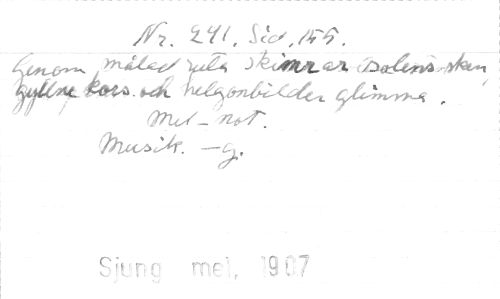 Nr. 241. Sid. 155.
Genom målad ruta skimrar solens sken,
gyllne kors och helgonbilder glimma.
Mel-not.
Musik. - g.
Sjung mel, 1907